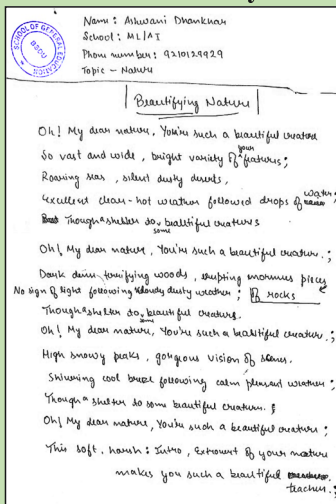 SCHOOL OF GENERAL EDUCATION
BSDU
Name : Ashwani Dhankhar
School : ML/AI
Phone number : 9210129929
Topic - Nature
Beautifying Nature
Oh! My dear nature, You're such a beautiful creature
So vast and wide, bright variety of your features;
Roaring seas, silent dusty deserts,
Excellent clear-hot weather followed drops of water
Though a shelter to some beautiful creatures
Oh! My dear nature, You're such a beautiful creature.;
Dark dim terrifying woods, erupting enormous pieces of rocks
No sign of light following cloudy dusty weather;
Though a shelter to some beautiful creature.
Oh! My dear nature, You're such a beautiful creature.;
High snowy peaks, gorgeous vision of scenes.
Shivering cool breeze following calm pleasant weather;
Though a shelter to some beautiful creature.;
Oh! My dear nature, You're such a beautiful creature;
This soft. harsh: Intro, Extrovert of your nature
makes you such a beautiful teacher.;